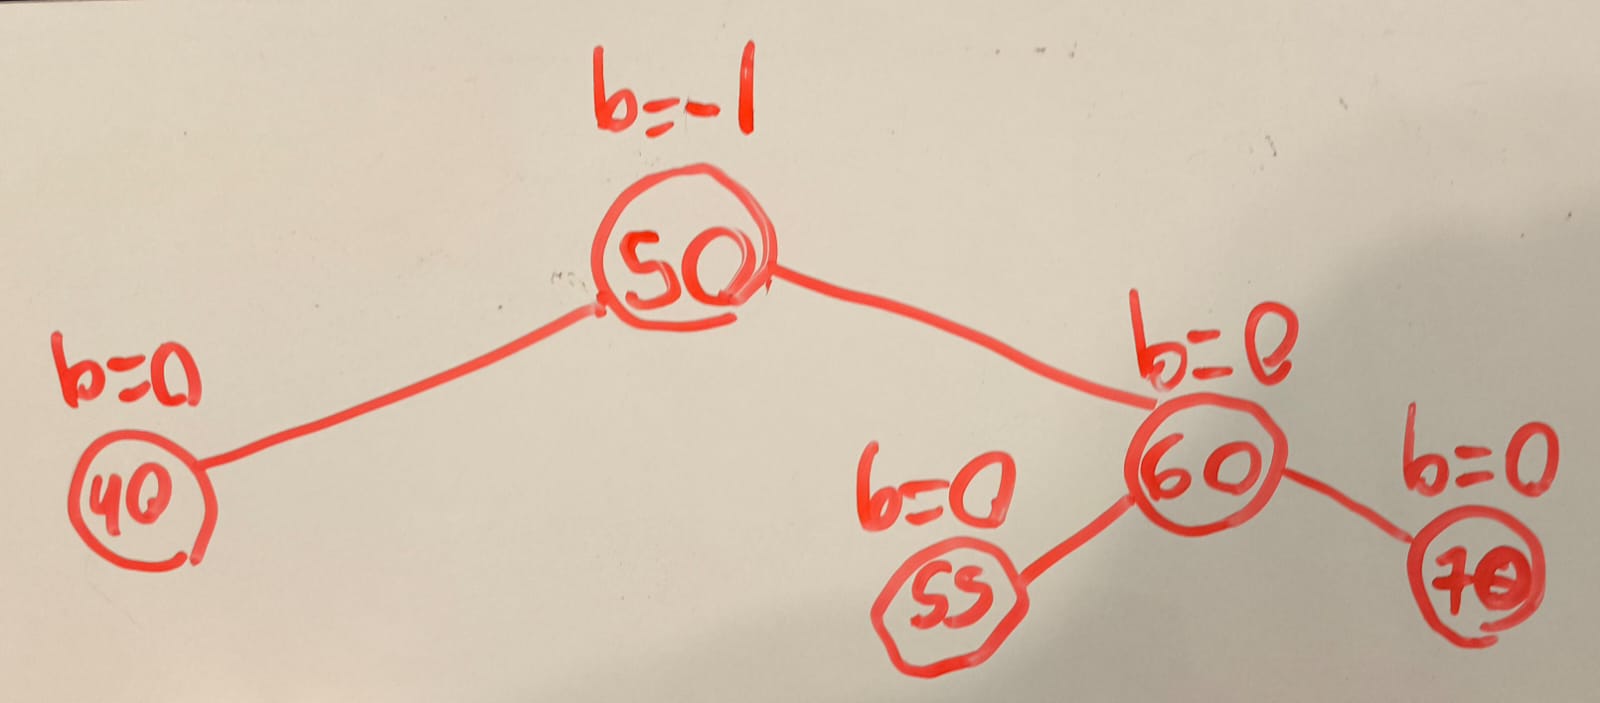 b=-1
50
b=0
40
b=0
60
b=0
55
b=0
70